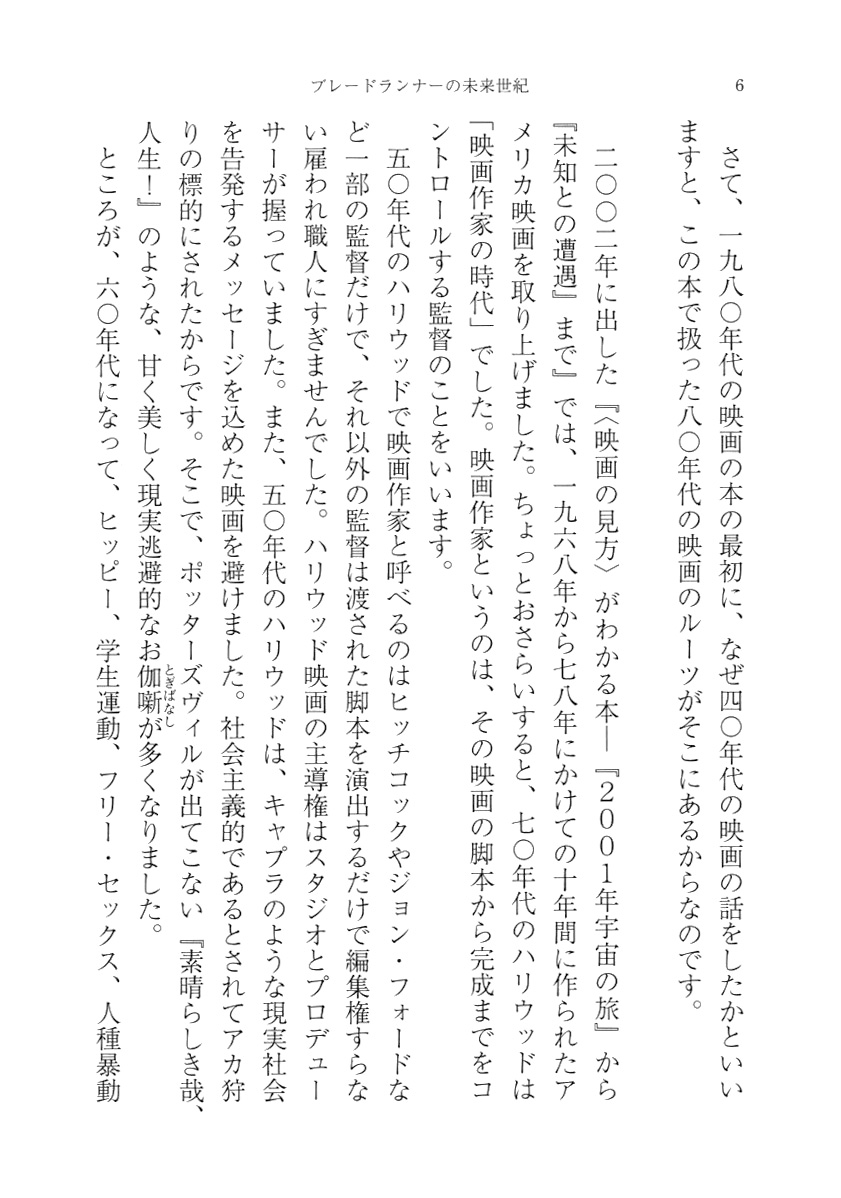 ブレードランナーの未来世紀
6
さて、一九八〇年代の映画の本の最初に、なぜ四〇年代の映画の話をしたかといい
ますと、この本で扱った八〇年代の映画のルーツがそこにあるからなのです。
二〇〇二年に出した『〈映画の見方〉がわかる本―『2001年宇宙の旅』から
『未知との遭遇』まで』では、一九六八年から七八年にかけての十年間に作られたア
メリカ映画を取り上げました。ちょっとおさらいすると、七〇年代のハリウッドは
「映画作家の時代」でした。映画作家というのは、その映画の脚本から完成までをコ
ントロールする監督のことをいいます。
五〇年代のハリウッドで映画作家と呼べるのはヒッチコックやジョン・フォードな
ど一部の監督だけで、それ以外の監督は渡された脚本を演出するだけで編集権すらな
い雇われ職人にすぎませんでした。ハリウッド映画の主導権はスタジオとプロデュー
サーが握っていました。また、五〇年代のハリウッドは、キャプラのような現実社会
を告発するメッセージを込めた映画を避けました。社会主義的であるとされてアカ狩
りの標的にされたからです。そこで、ポッターズヴィルが出てこない『素晴らしき哉、
人生！』のような、甘く美しく現実逃避的なお伽噺が多くなりました。
とぎばなし
ところが、六〇年代になって、ヒッピー、学生運動、フリー・セックス、人種暴動